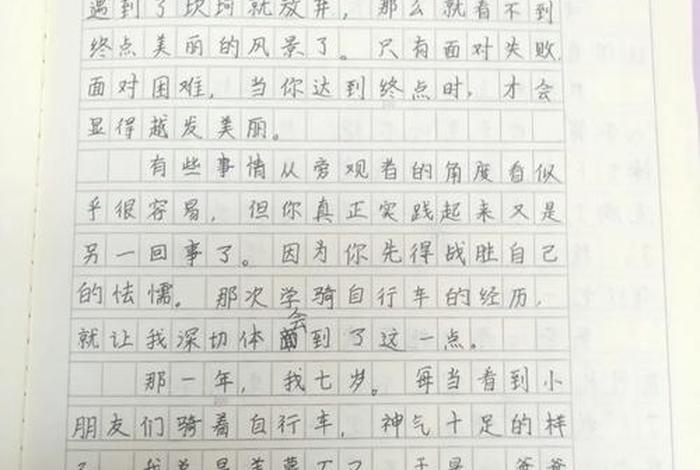 遇到了坎坷就放弃，那么就看不到
终点美丽的风景了。只有面对失败，
面对困难，当你达到终点时，才会
显得越发美丽。
有些事情从旁观者的角度看似
乎很容易，但你真正实践起来又是
另一回事了。因为你先得战胜自己
的怯懦。那次学骑自行车的经历，
就让我深切体会到了这一点。
那一年，我七岁。每当看到小
朋友们骑着自行车，神气十足的样
子，我总是羡慕不已。于是，爸爸